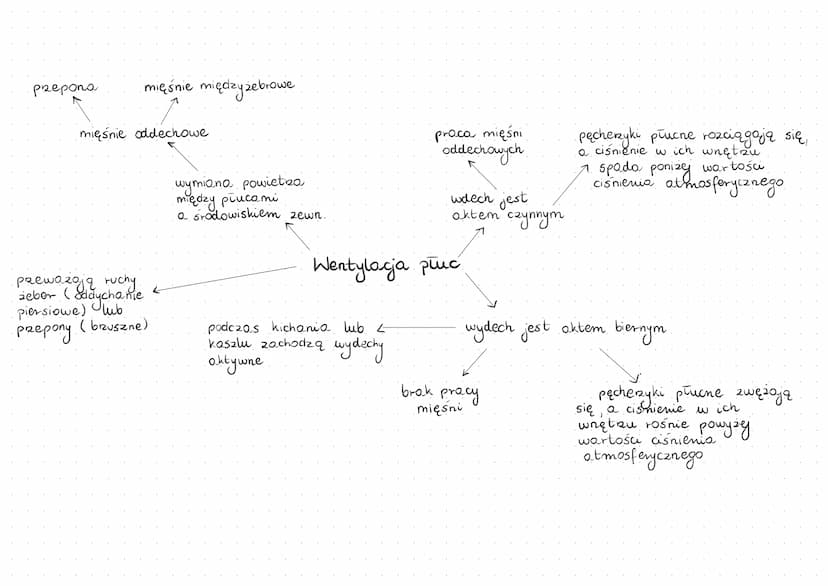 przepona
mięśnie międzyżebrowe
mięśnie oddechowe
praca mięśni
oddechowych
pęcherzyki płucne rozciągają się,
a ciśnienie w ich wnętrzu
spada poniżej wartości
ciśnienia atmosferycznego
wymiana powietrza
między płucami
a środowiskiem zewn.
wdech jest
aktem czynnym
Wentylacja płuc
przeważają ruchy
żeber (oddychanie
piersiowe) lub
przepony (brzuszne)
podczas kichania lub
kaszlu zachodzą wydechy
aktywne
wydech jest aktem biernym
brak pracy
mięśni
pęcherzyki płucne zwężają
się, a ciśnienie w ich
wnętrzu rośnie powyżej
wartości ciśnienia
atmosferycznego